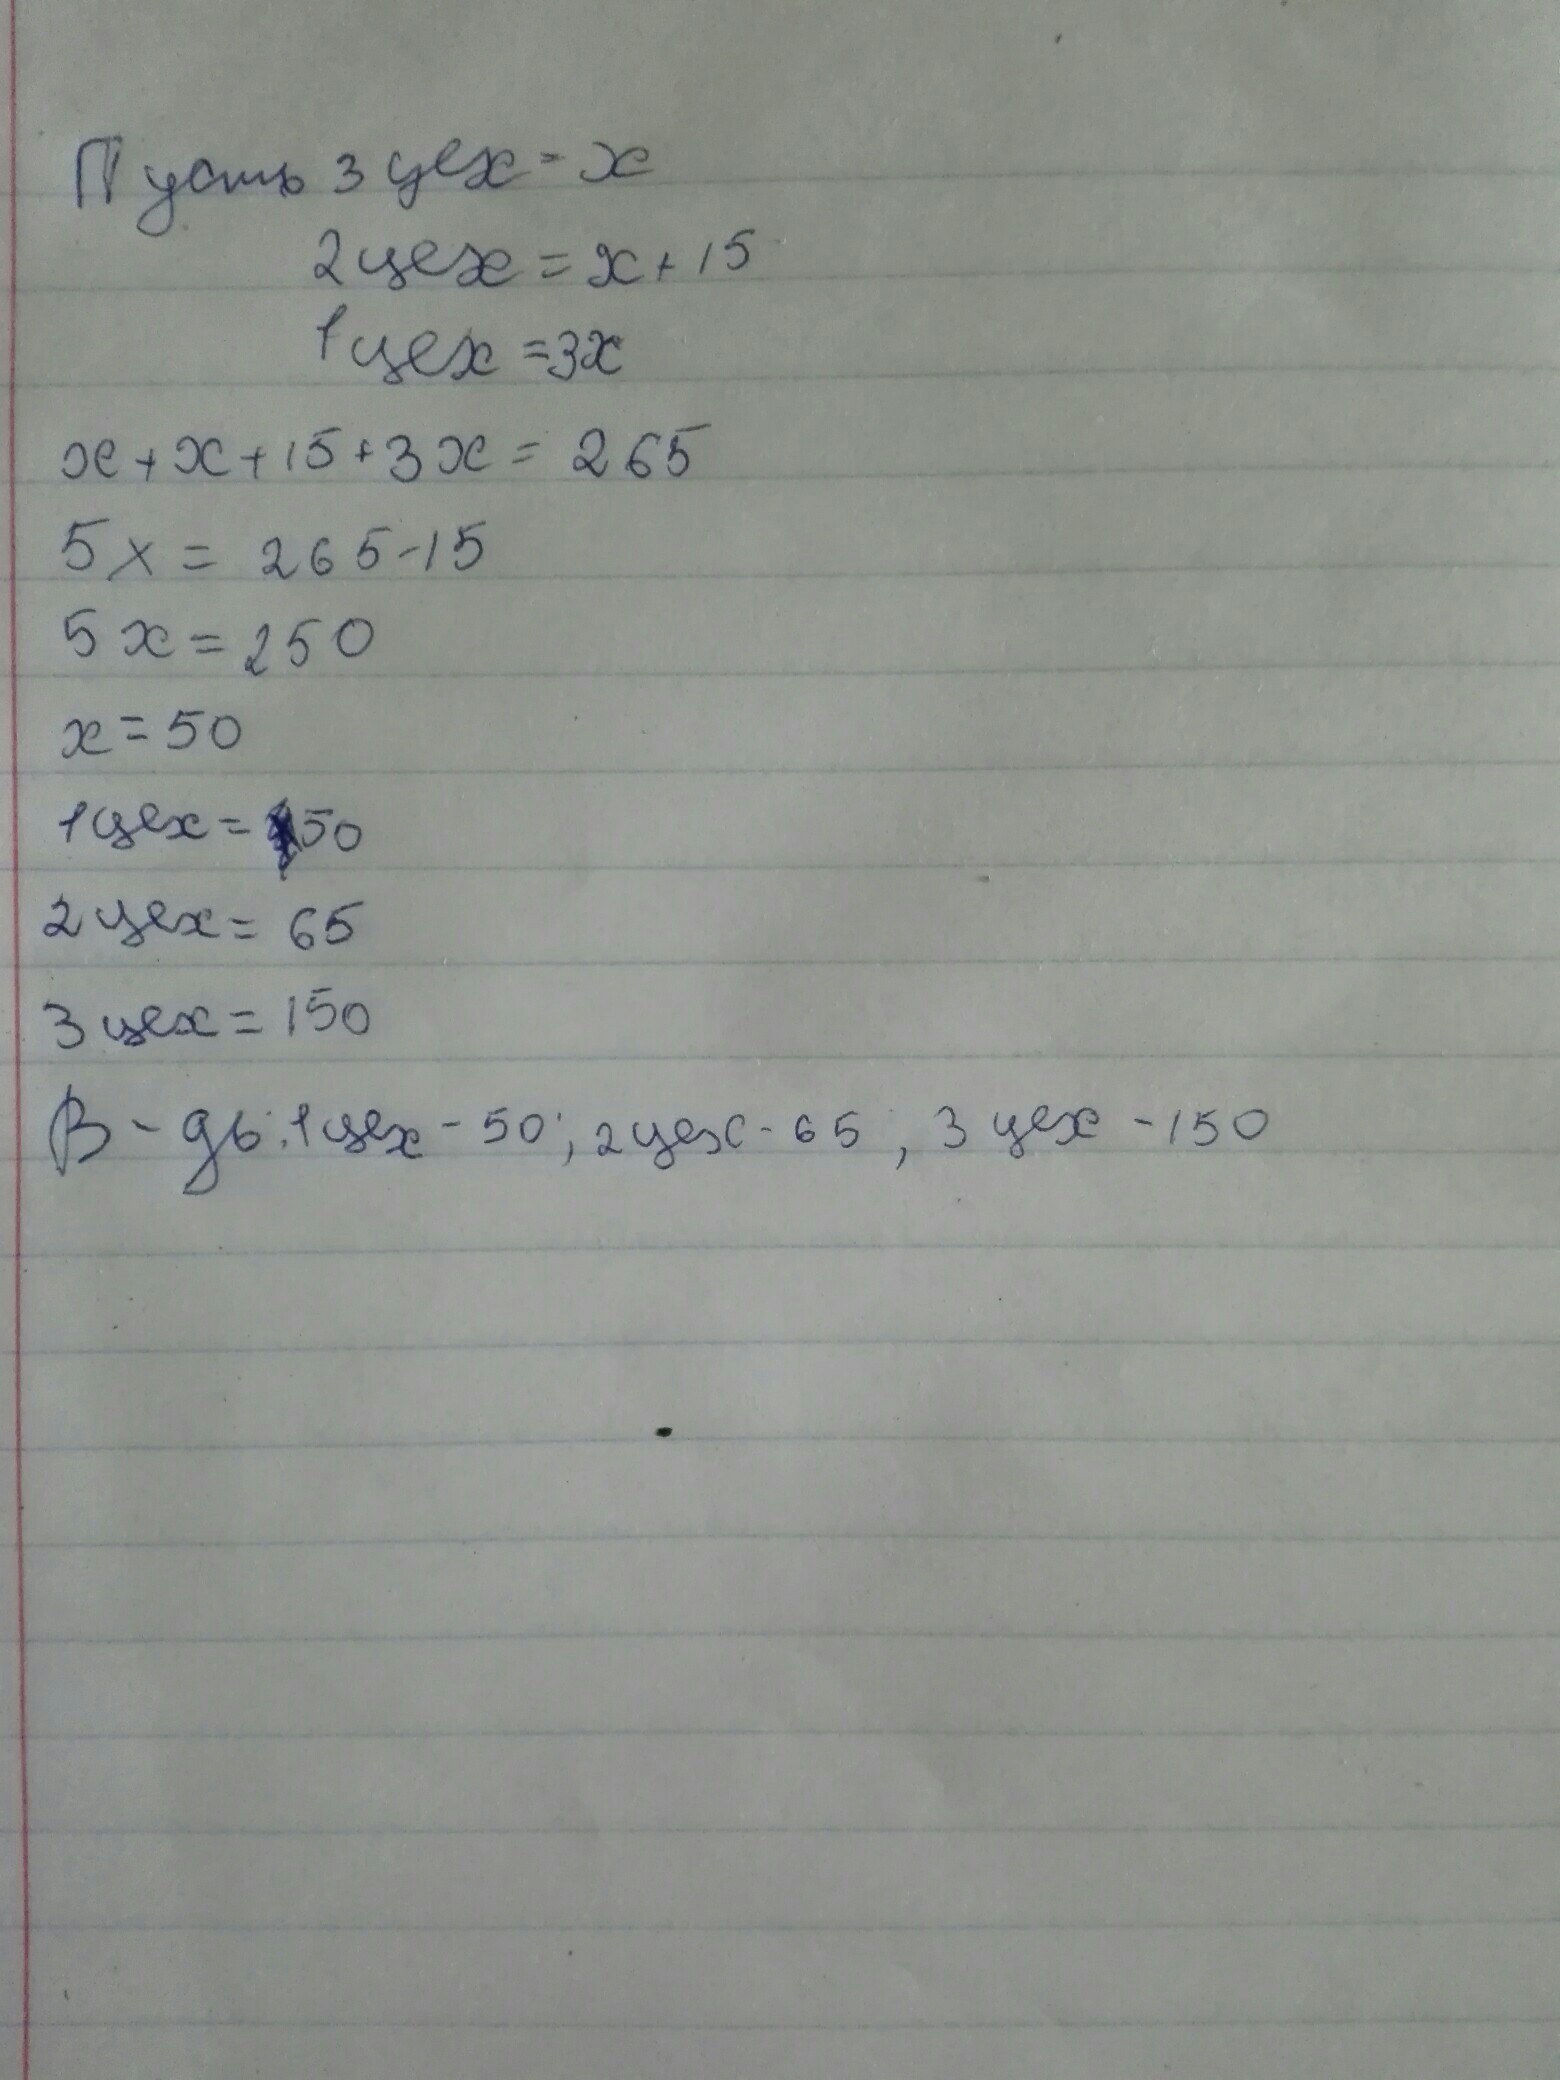 Пусть 3 цех = x
2 цех = x + 15
1 цех = 3x
x + x + 15 + 3x = 265
5x = 265 - 15
5x = 250
x = 50
1 цех = 50
2 цех = 65
3 цех = 150
В-дь: 1 цех - 50; 2 цех - 65; 3 цех - 150